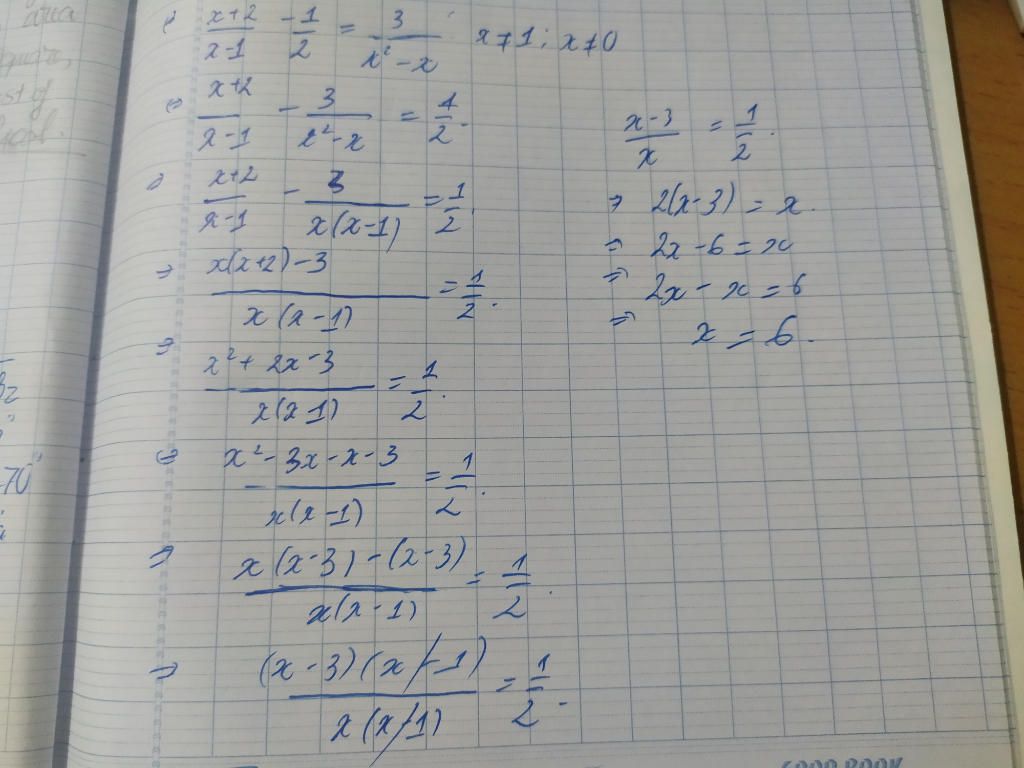 ana
st of
1) x+2/x-1 - 1/2 = 3/x²-x x≠1; x≠0
⇒ x+2/x-1 - 3/x²-x = 1/2.
x+2/x-1 - 3/x(x-1) = 1/2.
⇒ x(x+2)-3/x(x-1) = 1/2.
⇒ x²+2x-3/x(x-1) = 1/2.
⇒ x²-3x-x-3/x(x-1) = 1/2.
⇒ x(x-3)-(x-3)/x(x-1) = 1/2.
⇒ (x-3)(x-1)/x(x-1) = 1/2.
x-3/x = 1/2.
⇒ 2(x-3) = x.
⇒ 2x-6 = x
⇒ 2x-x = 6
⇒ x = 6.
70°